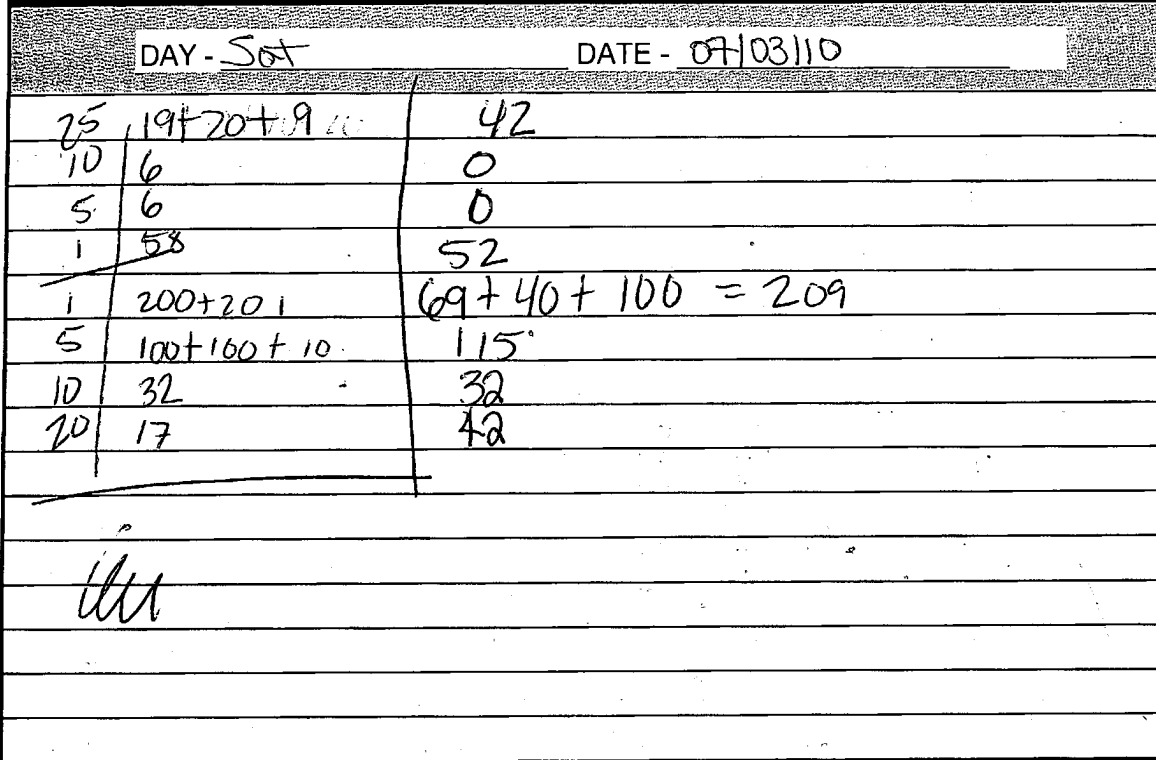 DAY - Sat DATE - 07/03/10
25 19+20+9 42
10 6 0
5 6 0
1 58 52
1 200+201 69+40+100 = 209
5 100+100+10 115
10 32 32
20 17 42